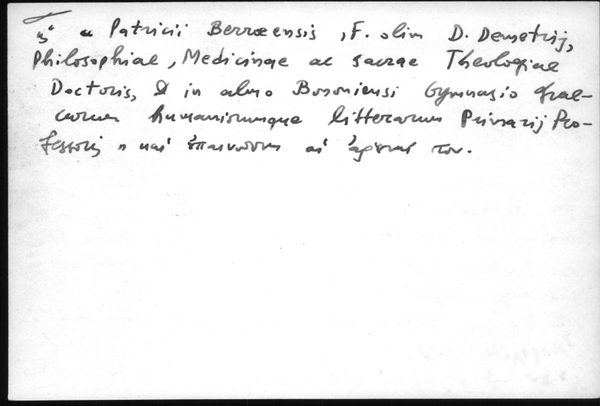 « Patricii Berrœensis, F. olim D. Demetrij,
Philosophiae, Medicinae ac sacrae Theologiae
Doctoris, & in almo Bononiensi Gymnasio Grae-
carum humaniorumque litterarum Primarij Pro-
fessoris » καὶ ἐπαινοῦνται αἱ ἀρεταί του.